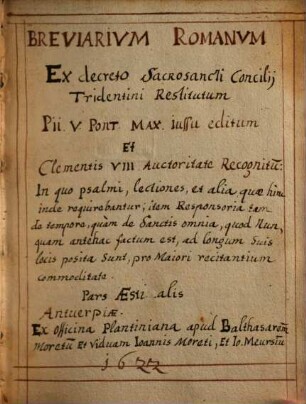 BREVIARIVM ROMANVM
Ex decreto Sacrosancti Concilij
Tridentini Restitutum
Pii V. Pont. Max. iussu editum
Et
Clementis VIII. Auctoritate Recognitū:
In quo psalmi, lectiones, et alia quae hinc
inde requirebantur; item Responsoria tam
de tempore, quàm de Sanctis omnia, quod Nun,
quam antehac factum est, ad longum Suis
locis posita Sunt, pro Maiori recitantium
commoditate.
Pars Æsti alis
Antuerpiæ.
Ex officina Plantiniana apud Balthasarem
Moretū Et Viduam Ioannis Moreti, Et Io. Meursiū
1622